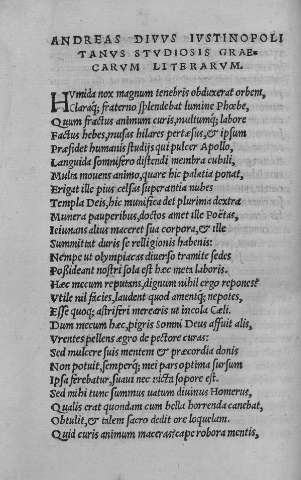 ANDREAS DIVVS IVSTINOPOLI
TANVS STVDIOSIS GRAE-
CARVM LITERARVM.
HVmida nox magnum tenebris obduxerat orbem,
Claraq; fraterno splendebat lumine Phœbe,
Quum fractus animum curis, multumq; labore
Factus hebes, musas hilares pertæsus, & ipsum
Præsidet humanis studijs qui pulcer Apollo,
Languida somnifero distendi membra cubili,
Multa mouens animo, quare hic palatia ponat,
Erigat ille pius celsas superantia nubes
Templa Deis, hic munifica det plurima dextra
Munera pauperibus, doctos amet ille Poëtas,
Ieiunans alius maceret sua corpora, & ille
Summittat duris se relligionis habenis:
Nempe ut olympiacas diuerso tramite sedes
Possideant nostri sola est hæc meta laboris.
Hæc mecum reputans, dignum nihil ergo reponis?
Vtile nil facies, laudent quod amentq; nepotes,
Esse quoq; astriferi merearis ut incola Cæli.
Dum mecum hæc, pigris Somni Deus affuit alis,
Vrentes pellens ægro de pectore curas:
Sed mulcere suis mentem & præcordia donis
Non potuit, semperq; mei pars optima sursum
Ipsa ferebatur, suaui nec uicta sopore est.
Sed mihi tunc summus uatum diuinus Homerus,
Qualis erat quondam cum bella horrenda canebat,
Obtulit, & talem sacro dedit ore loquelam.
Quid curis animum maceras? cape robora mentis,